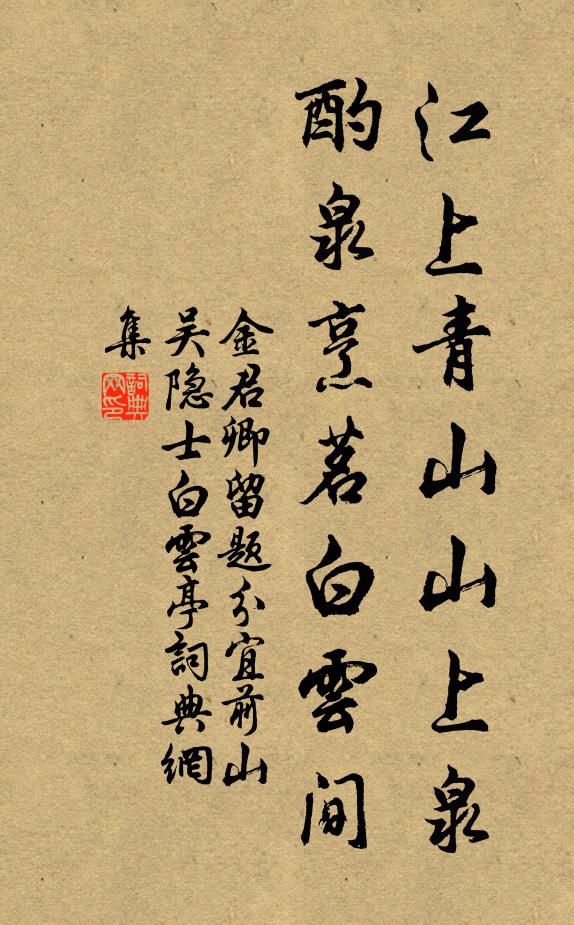 江上青山山上泉
酌泉烹茗白雲间
金君卿留題分宜前山
吴隐士白雲亭詞典網
集
詞典網印